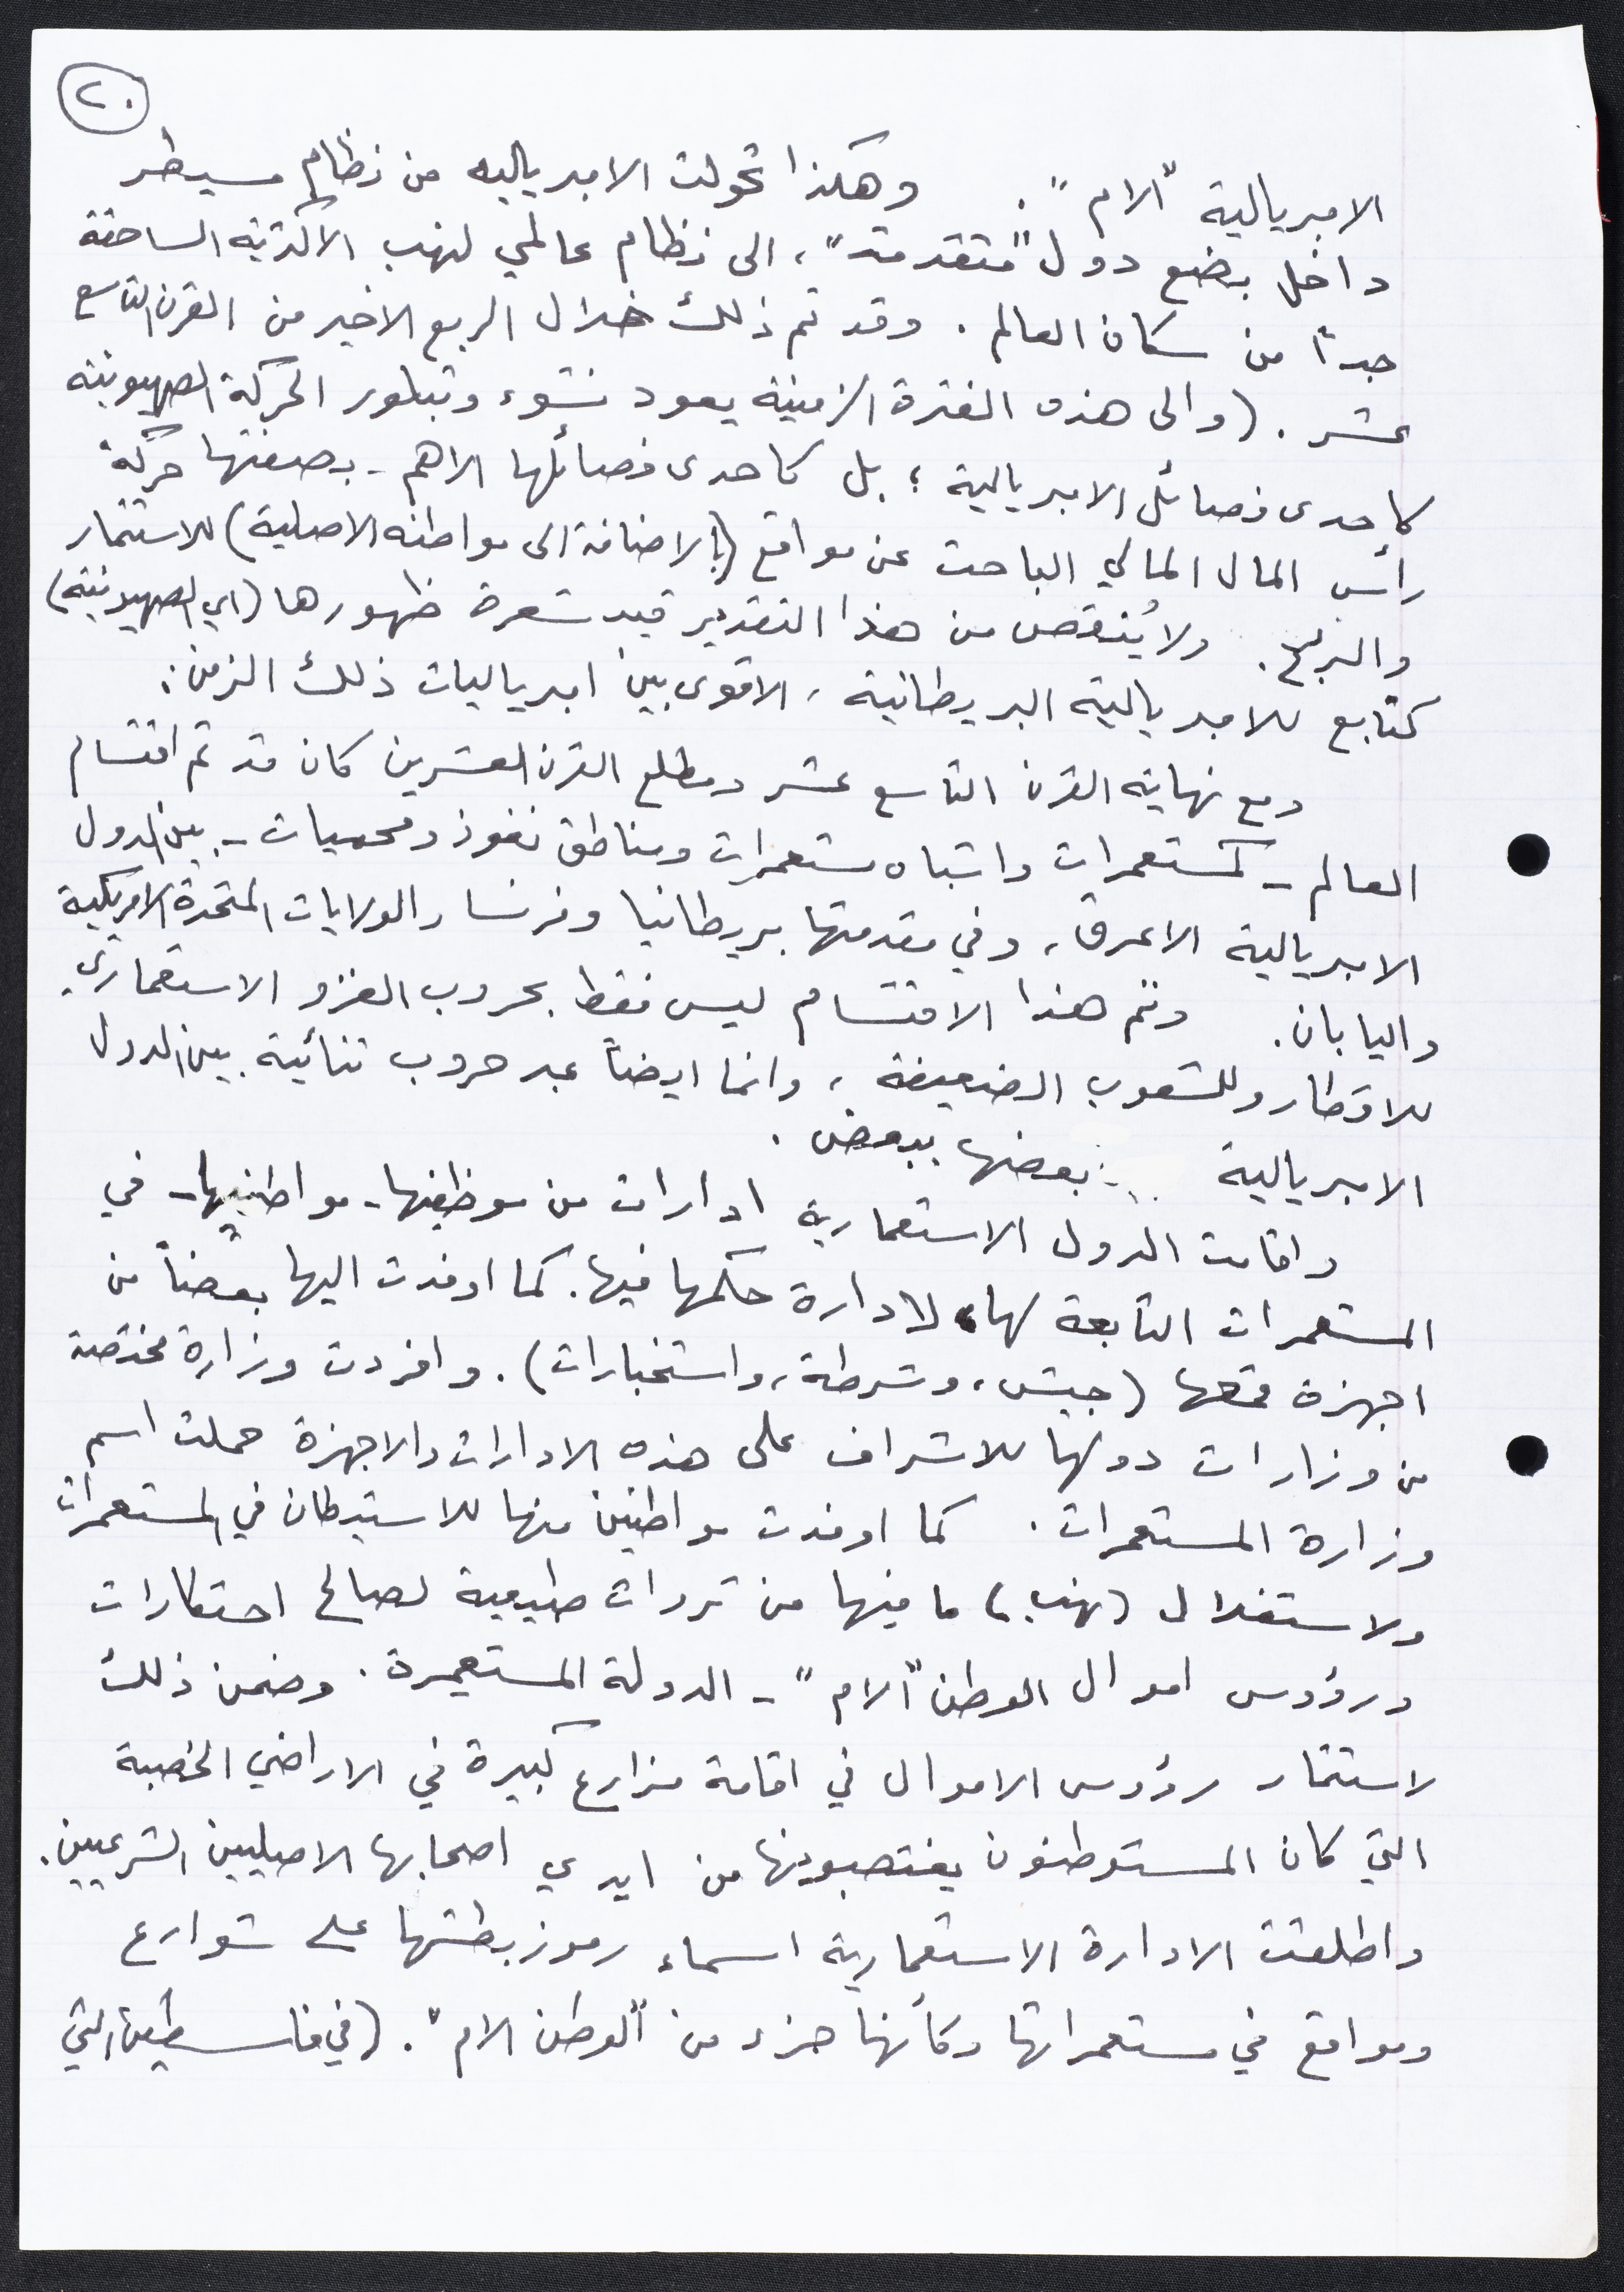 ٢٠
الامبريالية "الام". وهكذا تحولت الامبرياليه من نظام مسيطر
داخل بضع دول "متقدمة"، الى نظام عالمي لنهب الاكثرية الساحقة
جداً من سكان العالم. وقد تم ذلك خلال الربع الاخير من القرن التاسع
عشر. (والى هذه الفترة الزمنية يعود نشوء وتبلور الحركة الصهيونية
كاحدى فصائل الامبريالية؛ بل كاحدى فصائلها الاهم - بصفتها حركة
رأس المال المالي الباحث عن مواقع (بالاضافة الى مواطنه الاصلية) للاستثمار
والربح. ولا يُنقص من هذا التقدير قيد شعرة ظهورها (اي الصهيونية)
كتابع للامبريالية البريطانية، الاقوى بين امبرياليات ذلك الزمن.
ومع نهاية القرن التاسع عشر ومطلع القرن العشرين كان قد تم اقتسام
العالم - كمستعمرات واشباه مستعمرات ومناطق نفوذ ومحميات - بين الدول
الامبريالية الاعرق، وفي مقدمتها بريطانيا وفرنسا والولايات المتحدة الامريكية
واليابان. وتم هذا الاقتسام ليس فقط بحروب الغزو الاستعماري
للاقطار وللشعوب الضعيفة، وانما ايضاً عبر حروب ثنائية بين الدول
الامبريالية بعضها ببعض.
واقامت الدول الاستعمارية ادارات من موظفيها - مواطنيها - في
المستعمرات التابعة لها لادارة حكمها فيها. كما اوفدت اليها بعضاً من
اجهزة قمعها (جيش، وشرطة، واستخبارات). وافردت وزارة مختصة
من وزارات دولها للاشراف على هذه الادارات والاجهزة حملت اسم
وزارة المستعمرات. كما اوفدت مواطنين منها للاستيطان في المستعمرات
ولاستغلال (نهب) ما فيها من ثروات طبيعية لصالح احتكارات
ورؤوس اموال الوطن "الام" - الدولة المستعمِرة. وضمن ذلك
لاستثمار رؤوس الاموال في اقامة مزارع كبيرة في الاراضي الخصبة
التي كان المستوطنون يغتصبونها من ايدي اصحابها الاصيليين الشرعيين.
واطلقت الادارة الاستعمارية اسماء رموز بطشها على شوارع
ومواقع في مستعمراتها وكأنها جزء من "الوطن الام". (في فلسطين التي